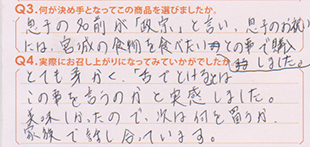 Q3.何が決め手となってこの商品を選びましたか。
息子の名前が「政宗」と言い、息子のお祝い
には、宮城の食物を食べたいとの事で購入
しました。
Q4.実際にお召し上がりになってみていかがでしたか
とても身がく、「舌でとける」とは
この事を言うのかと実感しました。
美味しかったので、次は何を買うか、
家族で話し合っています。